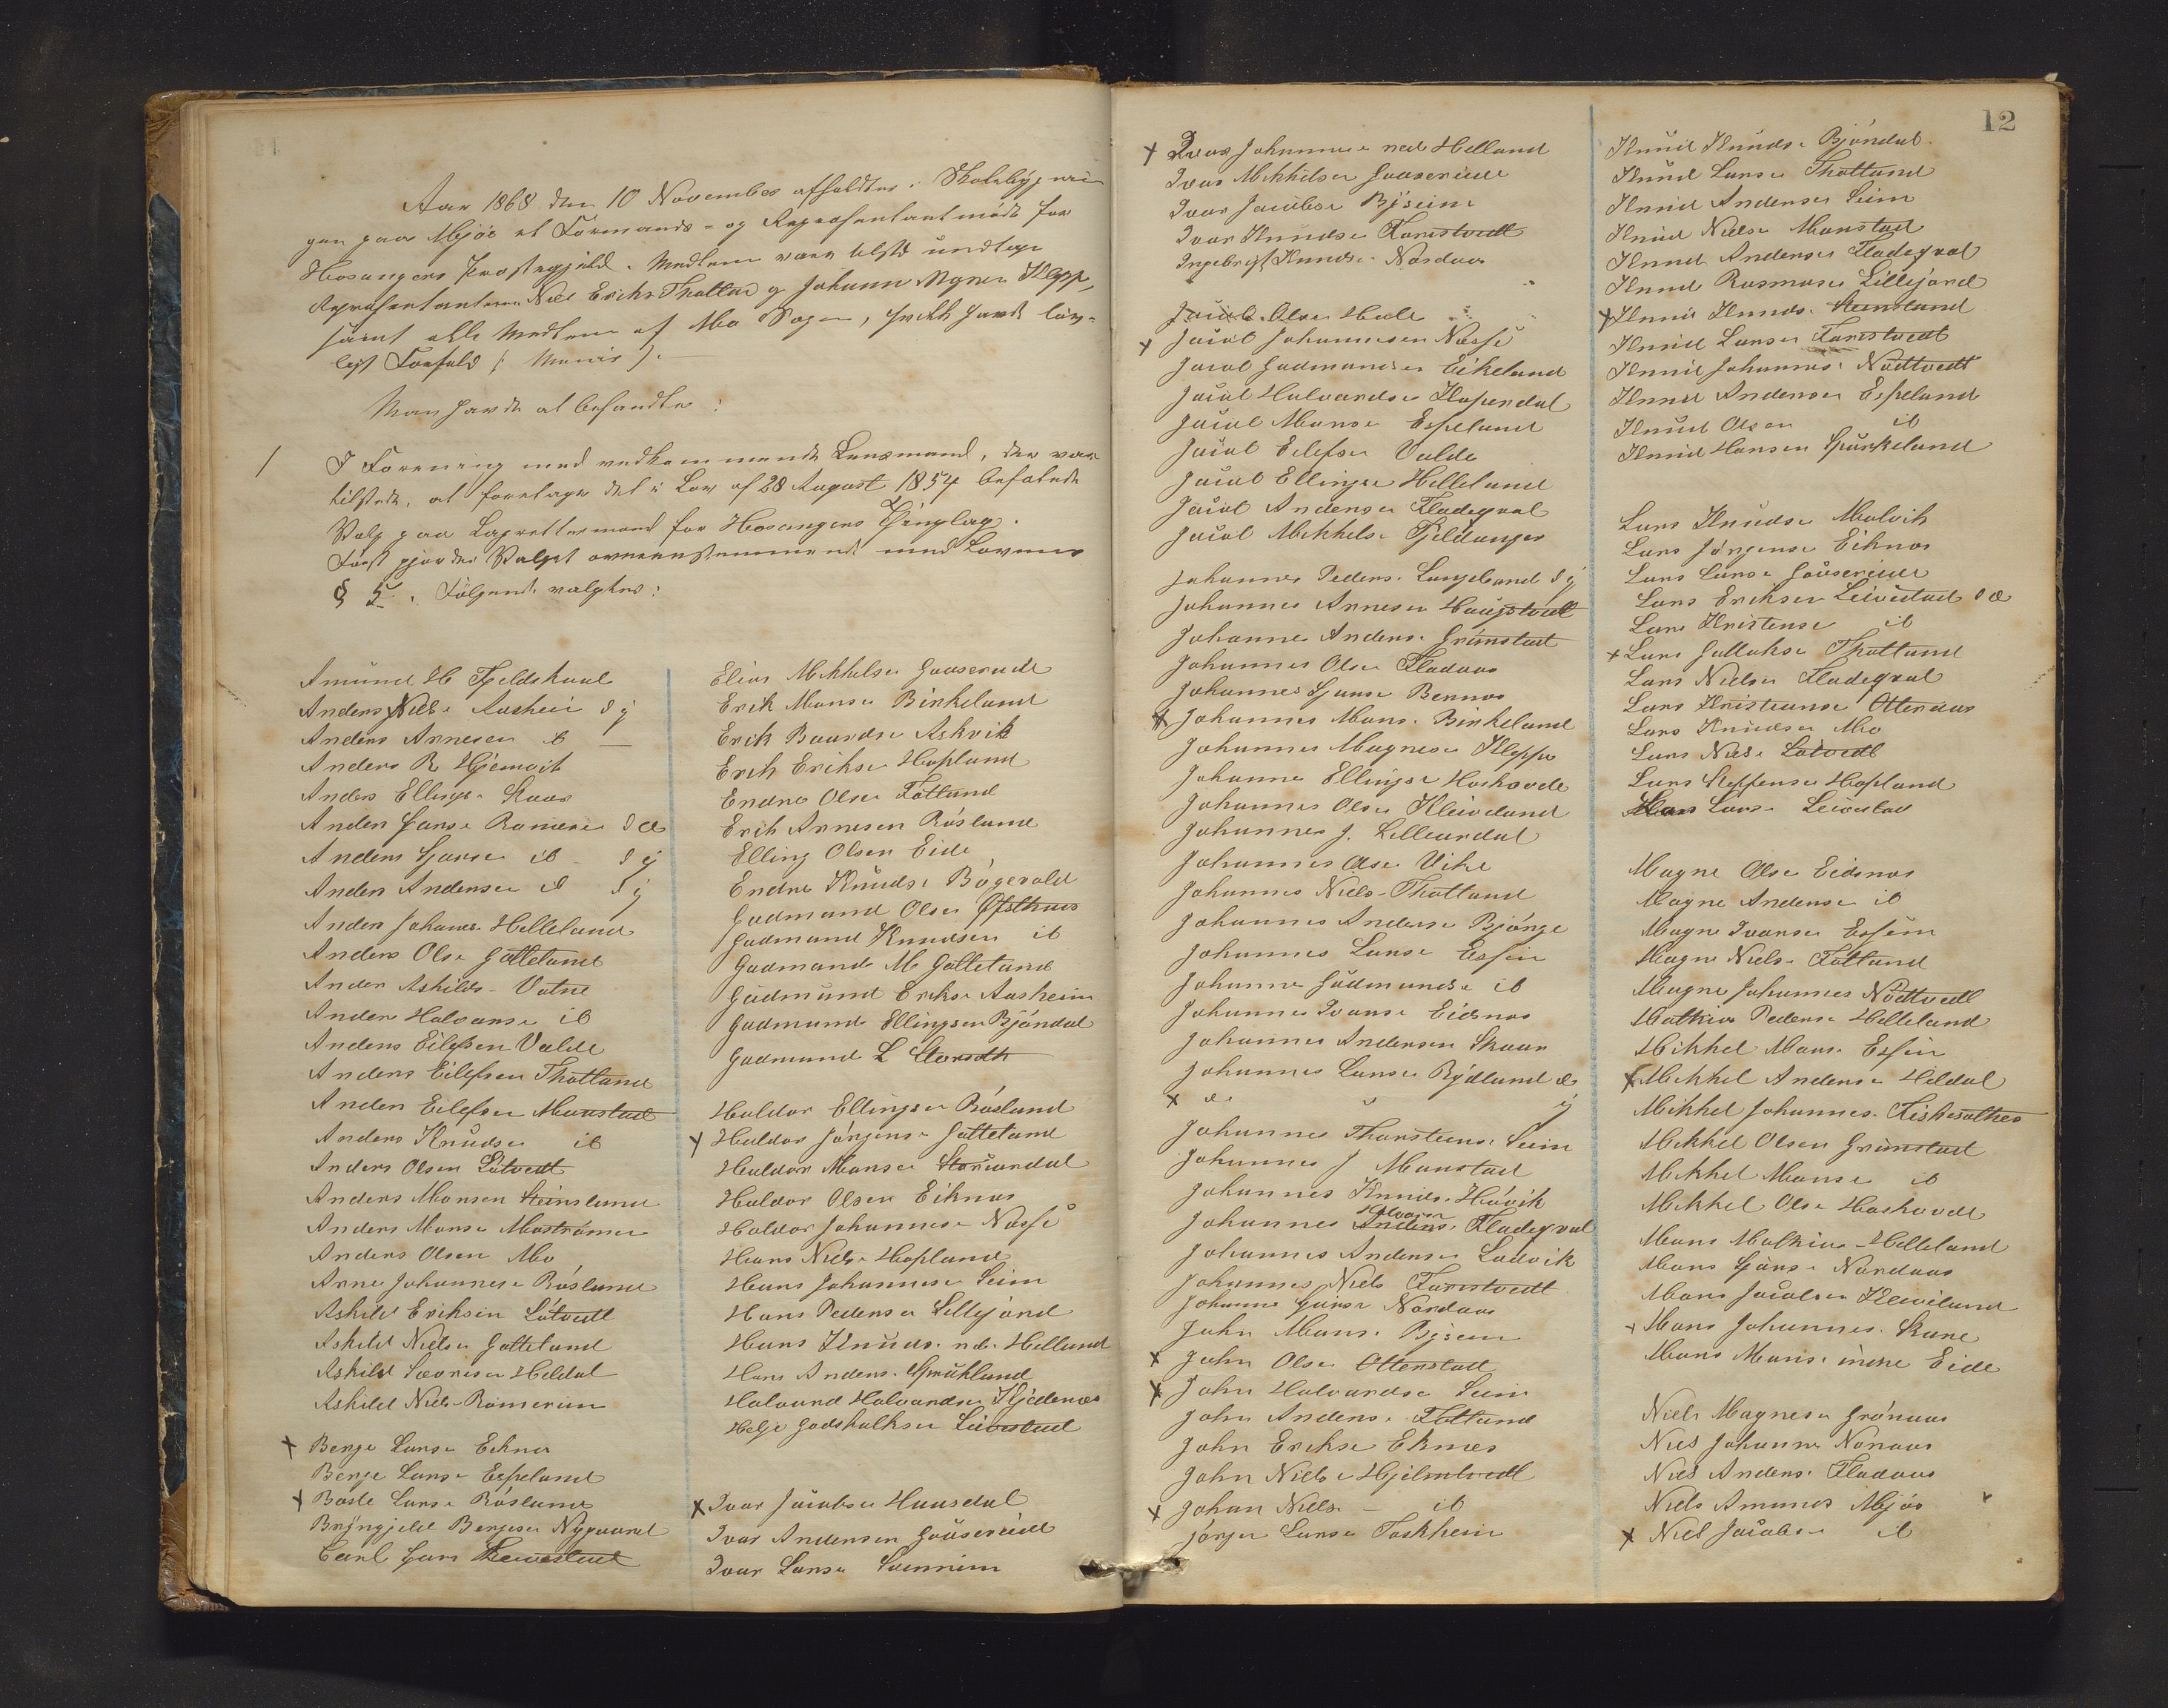 Aar 1868 den 10 November afholdtes i Skolebygnin
gen paa Mjøs et Formands- og Repræsentantmøde for
Hosangers Præstegjeld. Medlemmer vare tilstede undtagen
Repræsentanterne Niels Eriks. Thotland og Johannes Magnes. Klepp,
samt alle Medlemmer af Mo Sogn, hvilke havde lov-
ligt Forfald
Man havde at behandle:
1
I Forening med vedkommende Lensmand, der var
tilstede, at foretage det i Lov af 28 August 1854 befalede
Valg paa Lagrettesmænd for Hosangers Thinglag.
Først gjordes Valget overensstemmende med Lovens
§ 5. Følgende valgtes:
Amund H Fjeldskaal
Anders Niels. Aasheim d y
Anders Annesen ib —
Anders R Hjemvik
Anders Ellings. Skaar
Anders Hanse Romerei d æ
Anders Hanse ib d y
Anders Andersen ib d y
Anders Johannes. Helleland
Anders Olse Gatteland
Anders Askilds. Vatne
Anders Halvorse ib
Anders Eilefsen Valde
Anders Eilefsen Thotland
Anders Eilefsen Monstad
Anders Knudse ib
Anders Olsen Litvedt
Anders Monsen Steinsland
Anders Monse Mostrømen
Anders Olsen Mo
Arne Johannese Røsland
Askild Eriksen Litvedt
Askild Nielse Gatteland
Askild Sæverse Heldal
Askild Niels. Romerim
x Berge Larse Eknes
Berge Larse Espeland
x Børle Larse Røsland
Brynjeld Bergese Nygaard
Carl Hans Leivestad
Elias Mikkelse Gaaserud
Erik Monse Birkeland
Erik Baardse Askvik
Erik Erikse Hopland
Endre Olse Fotland
Erik Annesen Røsland
Elling Olsen Eide
Endre Knuds. Bøgevold
Gudmund Olse Østhus
Gudmund Knudsen ib
Gudmund M Gatteland
Gudmund Erikse Aasheim
Gudmund Ellingsen Bjøndal
Gudmund L
Haldor Ellingse Røsland
x Haldor Jørgense Gatteland
Haldor Monse Storeurdal
Haldor Olsen Eiknes
Haldor Johannese Næsse
Hans Niels. Hopland
Hans Johannese Seim
Hans Pederse Lillejord
Hans Knuds. ned. Helland
Hans Anders.
Halvard Halvardse Kjedenæs
Helje Godskalkse Leivestad
x Ivar Jacobse Hausdal
Ivar Andersen Gaaserud
Ivar Larse Svenheim
12
x Ivar Johannese ned Helland
Ivar Mikkelse Gaaserud
Ivar Jacobse Bysheim
Ivar Knudse Farestvedt
Ingebrigt Knuds. Nordaas
Jacob Olse Hole
x Jacob Johannesen Næsse
Jacob Gudmandse Eikeland
Jacob Halvardse Kloperdal
Jacob Monse Espeland
Jacob Eilefse Valde
Jacob Ellingse Helleland
Jacob Anderse Fladeqval
Jacob Mikkels. Fjeldanger
Johannes Peders. Langeland d y
Johannes Annese Haugstvedt
Johannes Anders. Grimstad
Johannes Olse Fladaas
Johannes Hanse Bernæs
x Johannes Mons. Birkeland
Johannes Magnese Kleppe
Johannes Ellingse Hoshovde
Johannes Olse Kleiveland
Johannes J. Lilleurdal
Johannes Olse Vike
Johannes Niels. Thotland
Johannes Anderse Bjørge
Johannes Larse Essem
Johannes Gudmundse ib
Johannes Ivarse Eidsnes
Johannes Andersen Skaar
Johannes Larse Rydland æ
x d. y
Johannes Thorsteins. Seim
Johannes J Monstad
Johannes Knuds. Høvik
Johannes Halvorse Fladeqval
Johannes Anderse Ladvik
Johannes Niels Farestvedt
Johannes Hanse Nordaas
John Mons. Bysem
x John Olse Otterstad
x John Halvardse Seim
John Anders. Fotland
John Erikse Eknes
John Nielse Hjelmtvedt
x Johan Nielse — ib
Jørgen Larse Toskheim
Knud Knuds. Bjøndal
Knud Larse Thotland
Knud Anderse Seim
Knud Nielse Monstad
Knud Anderse Fladeqval
Knud Rasmuse Lillejord
x Knud Knuds. Steinsland
Knud Larse Farestvedt
Knud Johannes. Nødtvedt
Knud Anderse Espeland
Knud Olsen ib
Knud Hansen Spurkeland
Lars Knudse Molvik
Lars Jørgense Eiknæs
Lars Larse Gaaserud
Lars Eriksen Leivestad d æ
Lars Kristense ib
x Lars Gullakse Thotland
Lars Nielse Fladeqval
Lars Kristianse Otteraas
Lars Knudse Mo
Lars Niels. Litvedt
Lars Steffense Hopland
Lars Larse Leivestad
Magne Olse Eidsnes
Magne Anderse ib
Magne Ivarse Essem
Magne Niels. Fotland
Magne Johannes Nødtvedt
Mathias Pederse Helleland
Mikkel Mons. Essem
x Mikkel Anderse Heldal
Mikkel Johannes. Fiskesæther
Mikkel Olsen Grimstad
Mikkel Monse ib
Mikkel Olse Hoshovde
Mons Mathias. Helleland
Mons Hans. Nordaas
Mons Jacobse Kleiveland
x Mons Johannes. Skare
Mons Mons. indre Eide
Niels Magnese Grønaas
Niels Johannes Nonaas
Niels Anders. Fladaas
Niels Amunds Mjøs
x Niels Jacobse ib